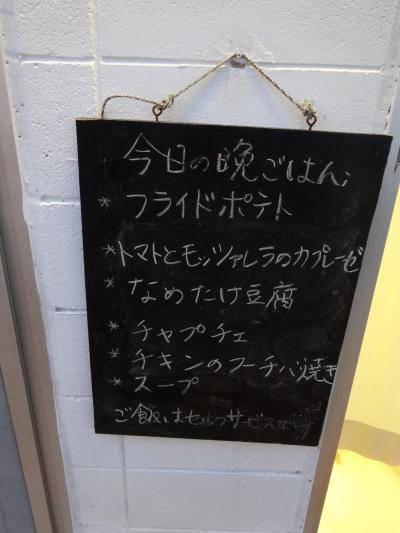 今日の晩ごはん;
* フライドポテト
* トマトとモッツァレラのカプレーゼ
* なめたけ豆腐
* チャプチェ
* チキンのフーチバ焼き
* スープ
ご飯はセルフサービスです